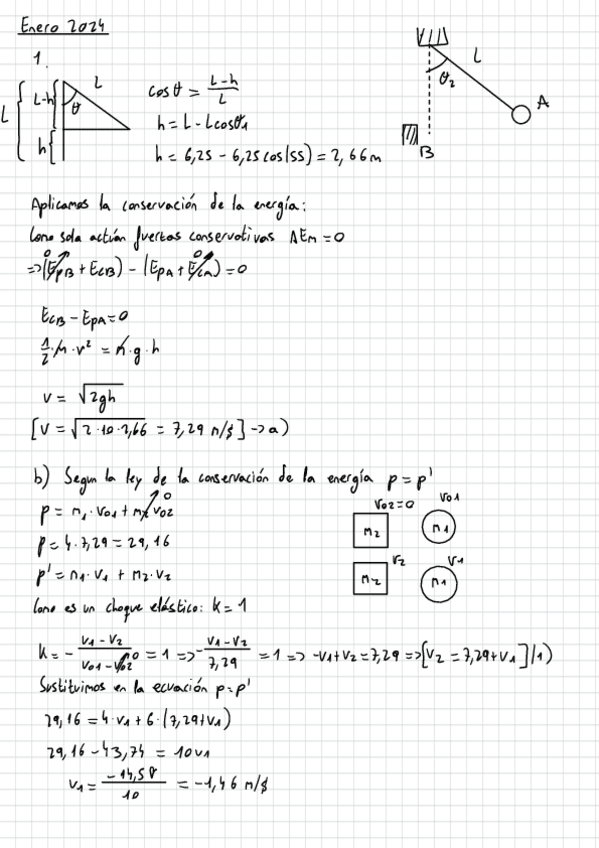 Enero 2024
1.
L
L-h
h
L
θ
cosθ = L-h / L
h = L - Lcosθ1
h = 6,25 - 6,25 cos(55) = 2,66 m
L
θ2
A
B
Aplicamos la conservación de la energía:
Como solo actúan fuerzas conservativas ΔEm = 0
=> (EpB + EcB) - (EpA + EcA) = 0
0
0
EcB - EpA = 0
1/2 · m · v² = m · g · h
v = √2gh
[v = √2·10·2,66 = 7,29 m/s] -> a)
b) Segun la ley de la conservación de la energía p = p'
p = m1 · v01 + m2 v02
0
p = 4 · 7,29 = 29,16
p' = m1 · v1 + m2 · v2
v02 = 0
v01
m2
m1
v2
v1
m2
m1
Como es un choque elástico: k = 1
k = - v1 - v2 / v01 - v02 = 1 => - v1 - v2 / 7,29 = 1 => -v1 + v2 = 7,29 => [v2 = 7,29 + v1] (1)
0
Sustituimos en la ecuación p = p'
29,16 = 4 · v1 + 6 · (7,29 + v1)
29,16 - 43,74 = 10v1
v1 = -14,58 / 10 = -1,46 m/s